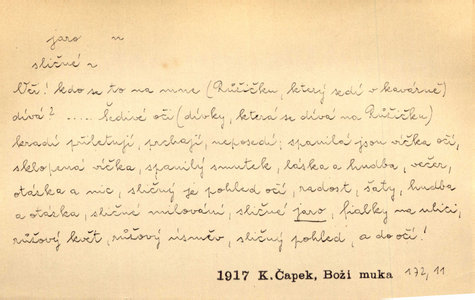 jaro n
sličné n
Věř! kdo se to na mne (Růžičku, který sedí v kavárně)
dívá? ..... Šedivé oči (dívky, která se dívá na Růžičku)
kradí přiletují, prchají, neposedí; spanilá jsou víčka očí,
sklopená víčka, spanilý smutek, láska a hudba, večer,
otázka a nic, sličný je pohled očí, radost, šaty, hudba
a otázka, sličné milování, sličné jaro, fialky na ulici,
růžový květ, růžový úsměv, sličný pohled, a do očí!
1917 K. Čapek, Boží muka 172, 11